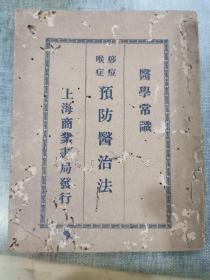 醫學常識
痧痘
喉症
預防醫治法
上海商業書局發行